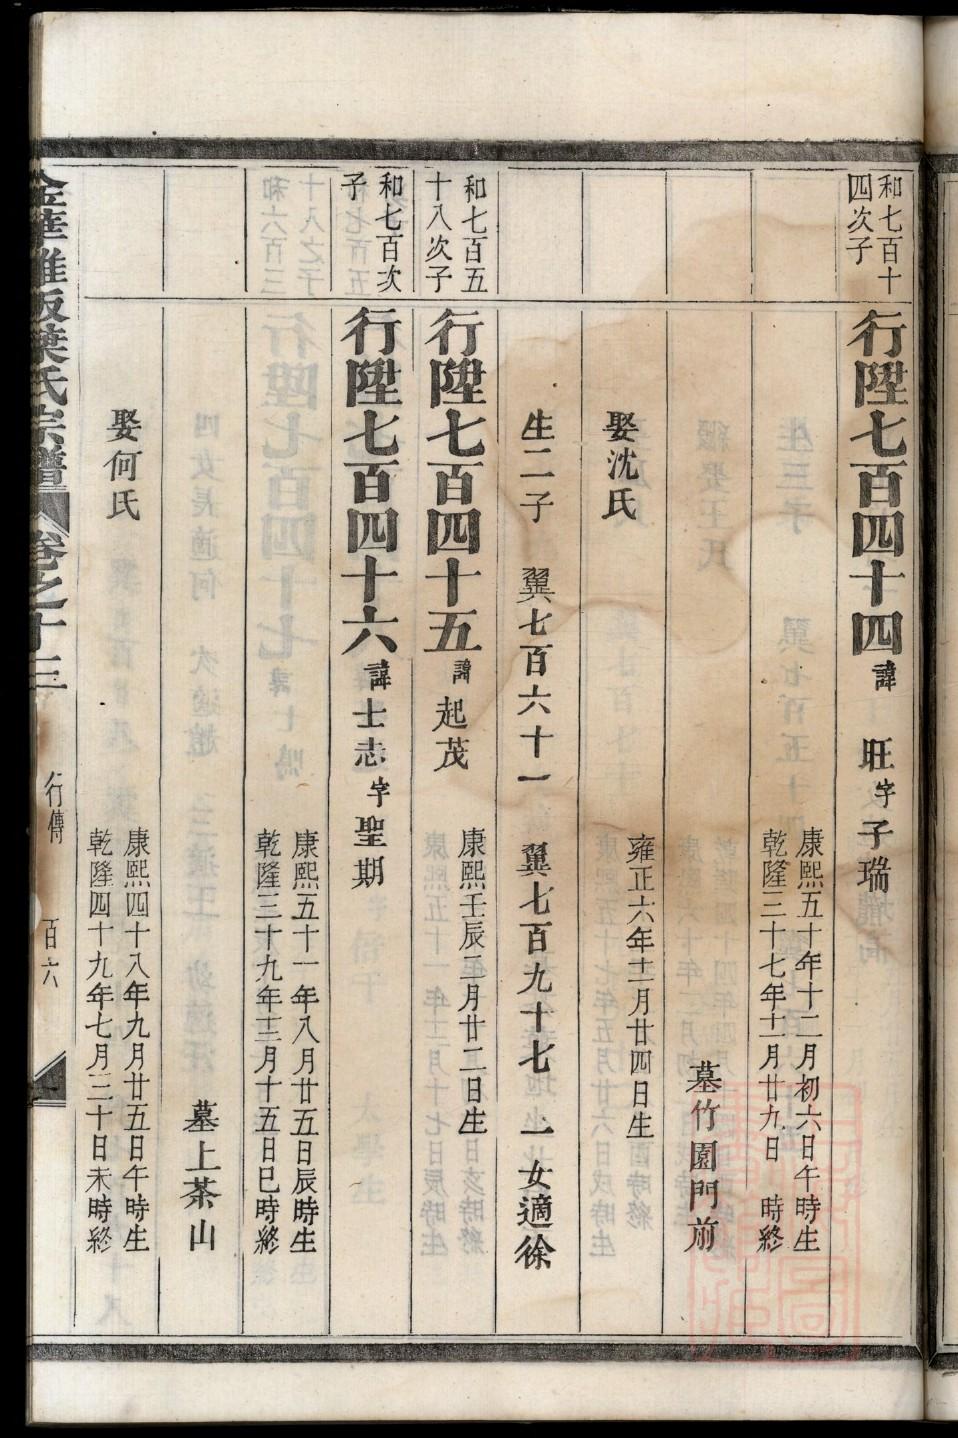 和七百十
四次子
行陞七百四十四諱 旺字子瑞
康熙五十年十二月初六日午時生
乾隆三十七年十一月廿九日 時終
墓竹園門前
娶沈氏
雍正六年十二月廿四日生
生二子 翼七百六十一 翼七百九十七 一女適徐
和七百五
十八次子
行陞七百四十五諱起茂
康熙壬辰二月廿二日生
和七百次
子
行陞七百四十六諱士志字聖期
康熙五十一年八月廿五日辰時生
乾隆三十九年三月十五日巳時終
墓上茶山
娶何氏
康熙四十八年九月廿五日午時生
乾隆四十九年七月三十日未時終
葉氏宗譜 卷之十三 行傳 百六